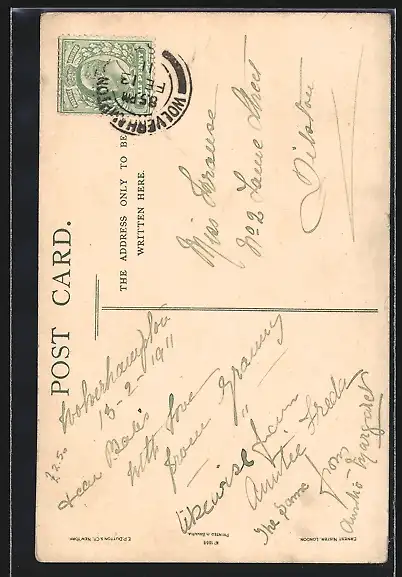 POST CARD.
THE ADDRESS ONLY TO BE
WRITTEN HERE.
WOLVERHAMPTON
Miss Krause
No 2 Lame Street
Bilston
Wolverhampton
13-2-1911
Dear Babis
With love
from Granny
Likewise from
Auntie Freda
The same from
Auntie Margaret
£2.50
E.P. DUTTON & Co. NEW YORK.
PRINTED IN BAVARIA
ERNEST NISTER, LONDON.